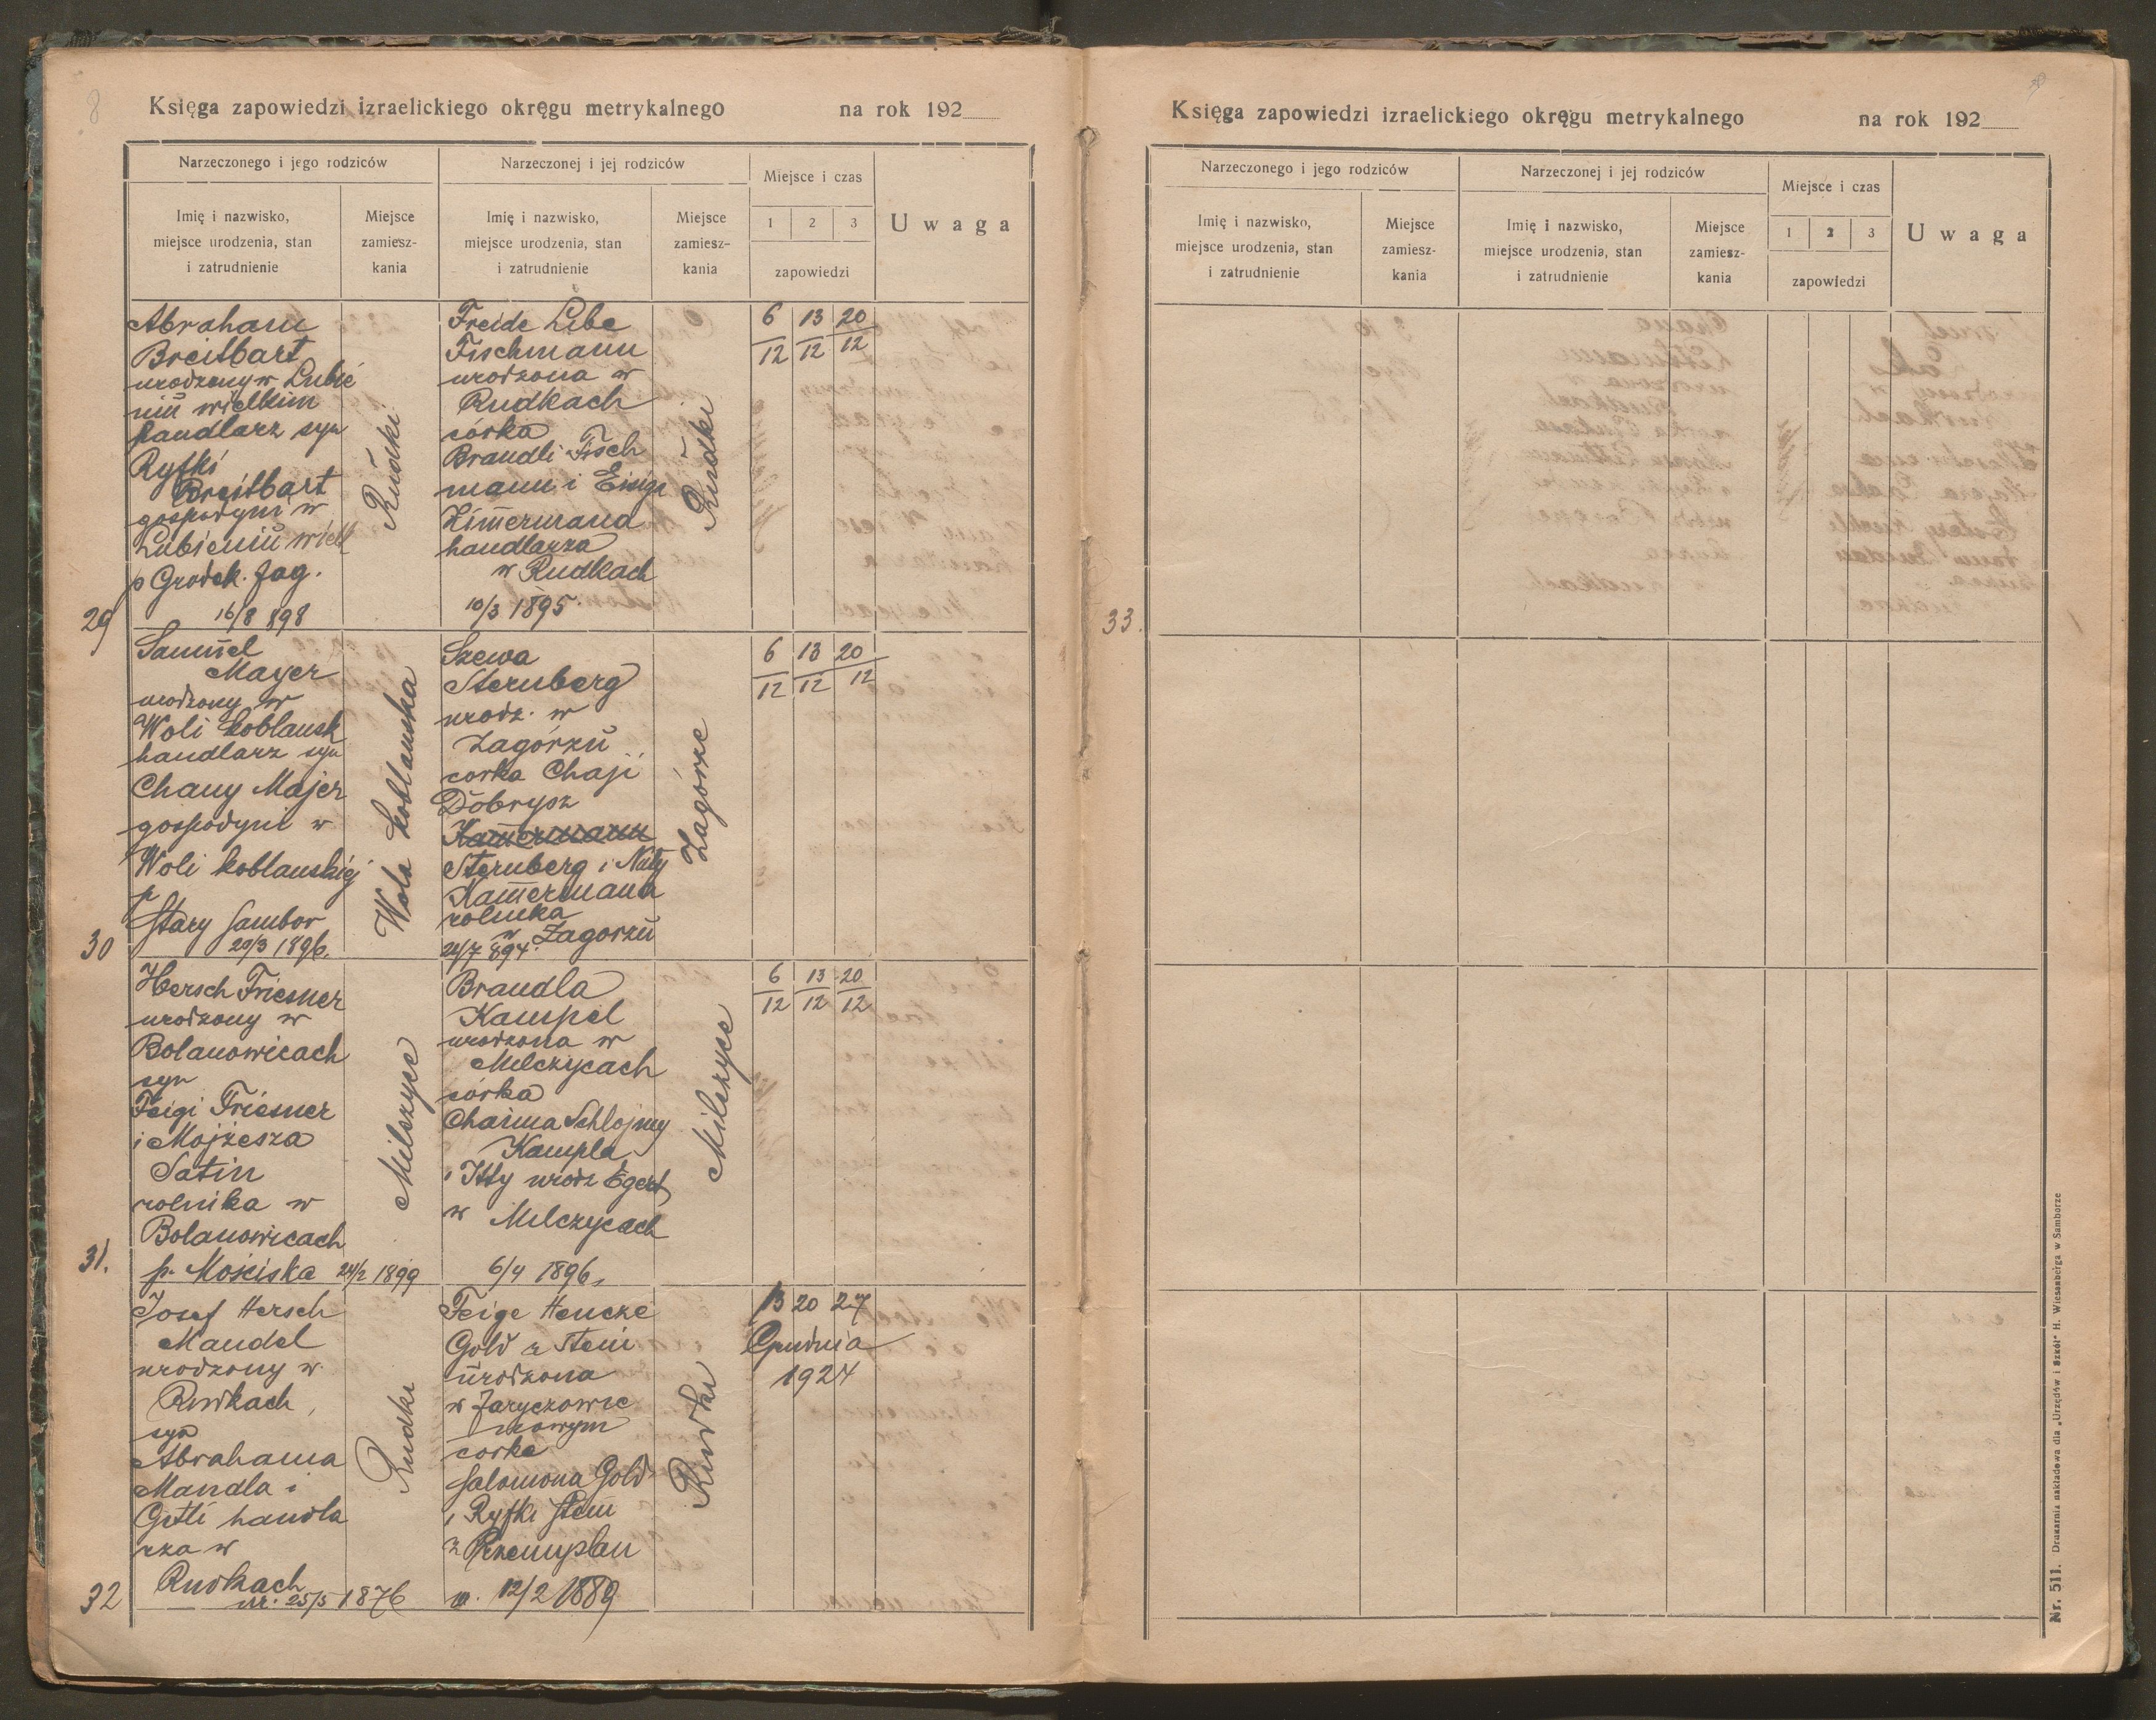 8
Księga zapowiedzi izraelickiego okręgu metrykalnego na rok 192
Narzeczonego i jego rodziców
Narzeczonej i jej rodziców
Miejsce i czas
Uwaga
Imię i nazwisko,
miejsce urodzenia, stan
i zatrudnienie
Miejsce
zamiesz-
kania
Imię i nazwisko,
miejsce urodzenia, stan
i zatrudnienie
Miejsce
zamiesz-
kania
1 2 3
zapowiedzi
29
Abraham
Breitbart
urodzony w Lubie
niu wielkim
handlarz syn
Ryfki
Breitbart
gospodyni w
Lubieniu wielk
p Grodek. Jag.
16/8 898
Rudki
Freide Libe
Fischmann
urodzona w
Rudkach
córka
Brandli Fisch
mann i Eisiga
Zimermana
handlarza
w Rudkach
10/3 1895.
Rudki
6 13 20
12 12 12
30
Samuel
Mayer
urodzony w
Woli koblansk
handlarz syn
Chany Majer
gospodyni w
Woli koblanskiej
p
Stary Sambor
29/3 1896.
Wola koblanska
Szewa
Sternberg
urodz. w
Zagórzu
corka Chaji
Dobrysz
Kamermann
Sternberg i Nuty
Kamermana
rolnika
w Zagorzu
24/7 894.
Zagórze
6 13 20
12 12 12
31.
Hersch Friesner
urodzony w
Bolanowicach
syn
Feigi Friesner
i Mojżesza
Satin
rolnika w
Bolanowicach
p. Mościska 24/2 1899
Milczyce
Brandla
Kampel
urodzona w
Milczycach
córka
Chaima Schlojmy
Kampla
i Itty urodz Egert
w Milczycach
6/4 1896.
Milczyce
6 13 20
12 12 12
32
Josef Hersch
Mandel
urodzony w
Rudkach,
syn
Abrahama
Mandla i
Gitli handla
rza w
Rudkach
ur. 25/5 1876
Rudki
Feige Hencze
Gold z Stein
urodzona
w Jaryczowie
nowym
corka
Salomona Gold
i Ryfki Stein
z Przemyslan
u. 12/2 1889
Rudki
13 20 27
Grudnia
1924
Księga zapowiedzi izraelickiego okręgu metrykalnego na rok 192
Narzeczonego i jego rodziców
Narzeczonej i jej rodziców
Miejsce i czas
Uwaga
Imię i nazwisko,
miejsce urodzenia, stan
i zatrudnienie
Miejsce
zamiesz-
kania
Imię i nazwisko,
miejsce urodzenia, stan
i zatrudnienie
Miejsce
zamiesz-
kania
1 2 3
zapowiedzi
33.
Nr. 511. Drukarnia nakładowa dla „Urzędów i Szkół" H. Wiesenberga w Samborze